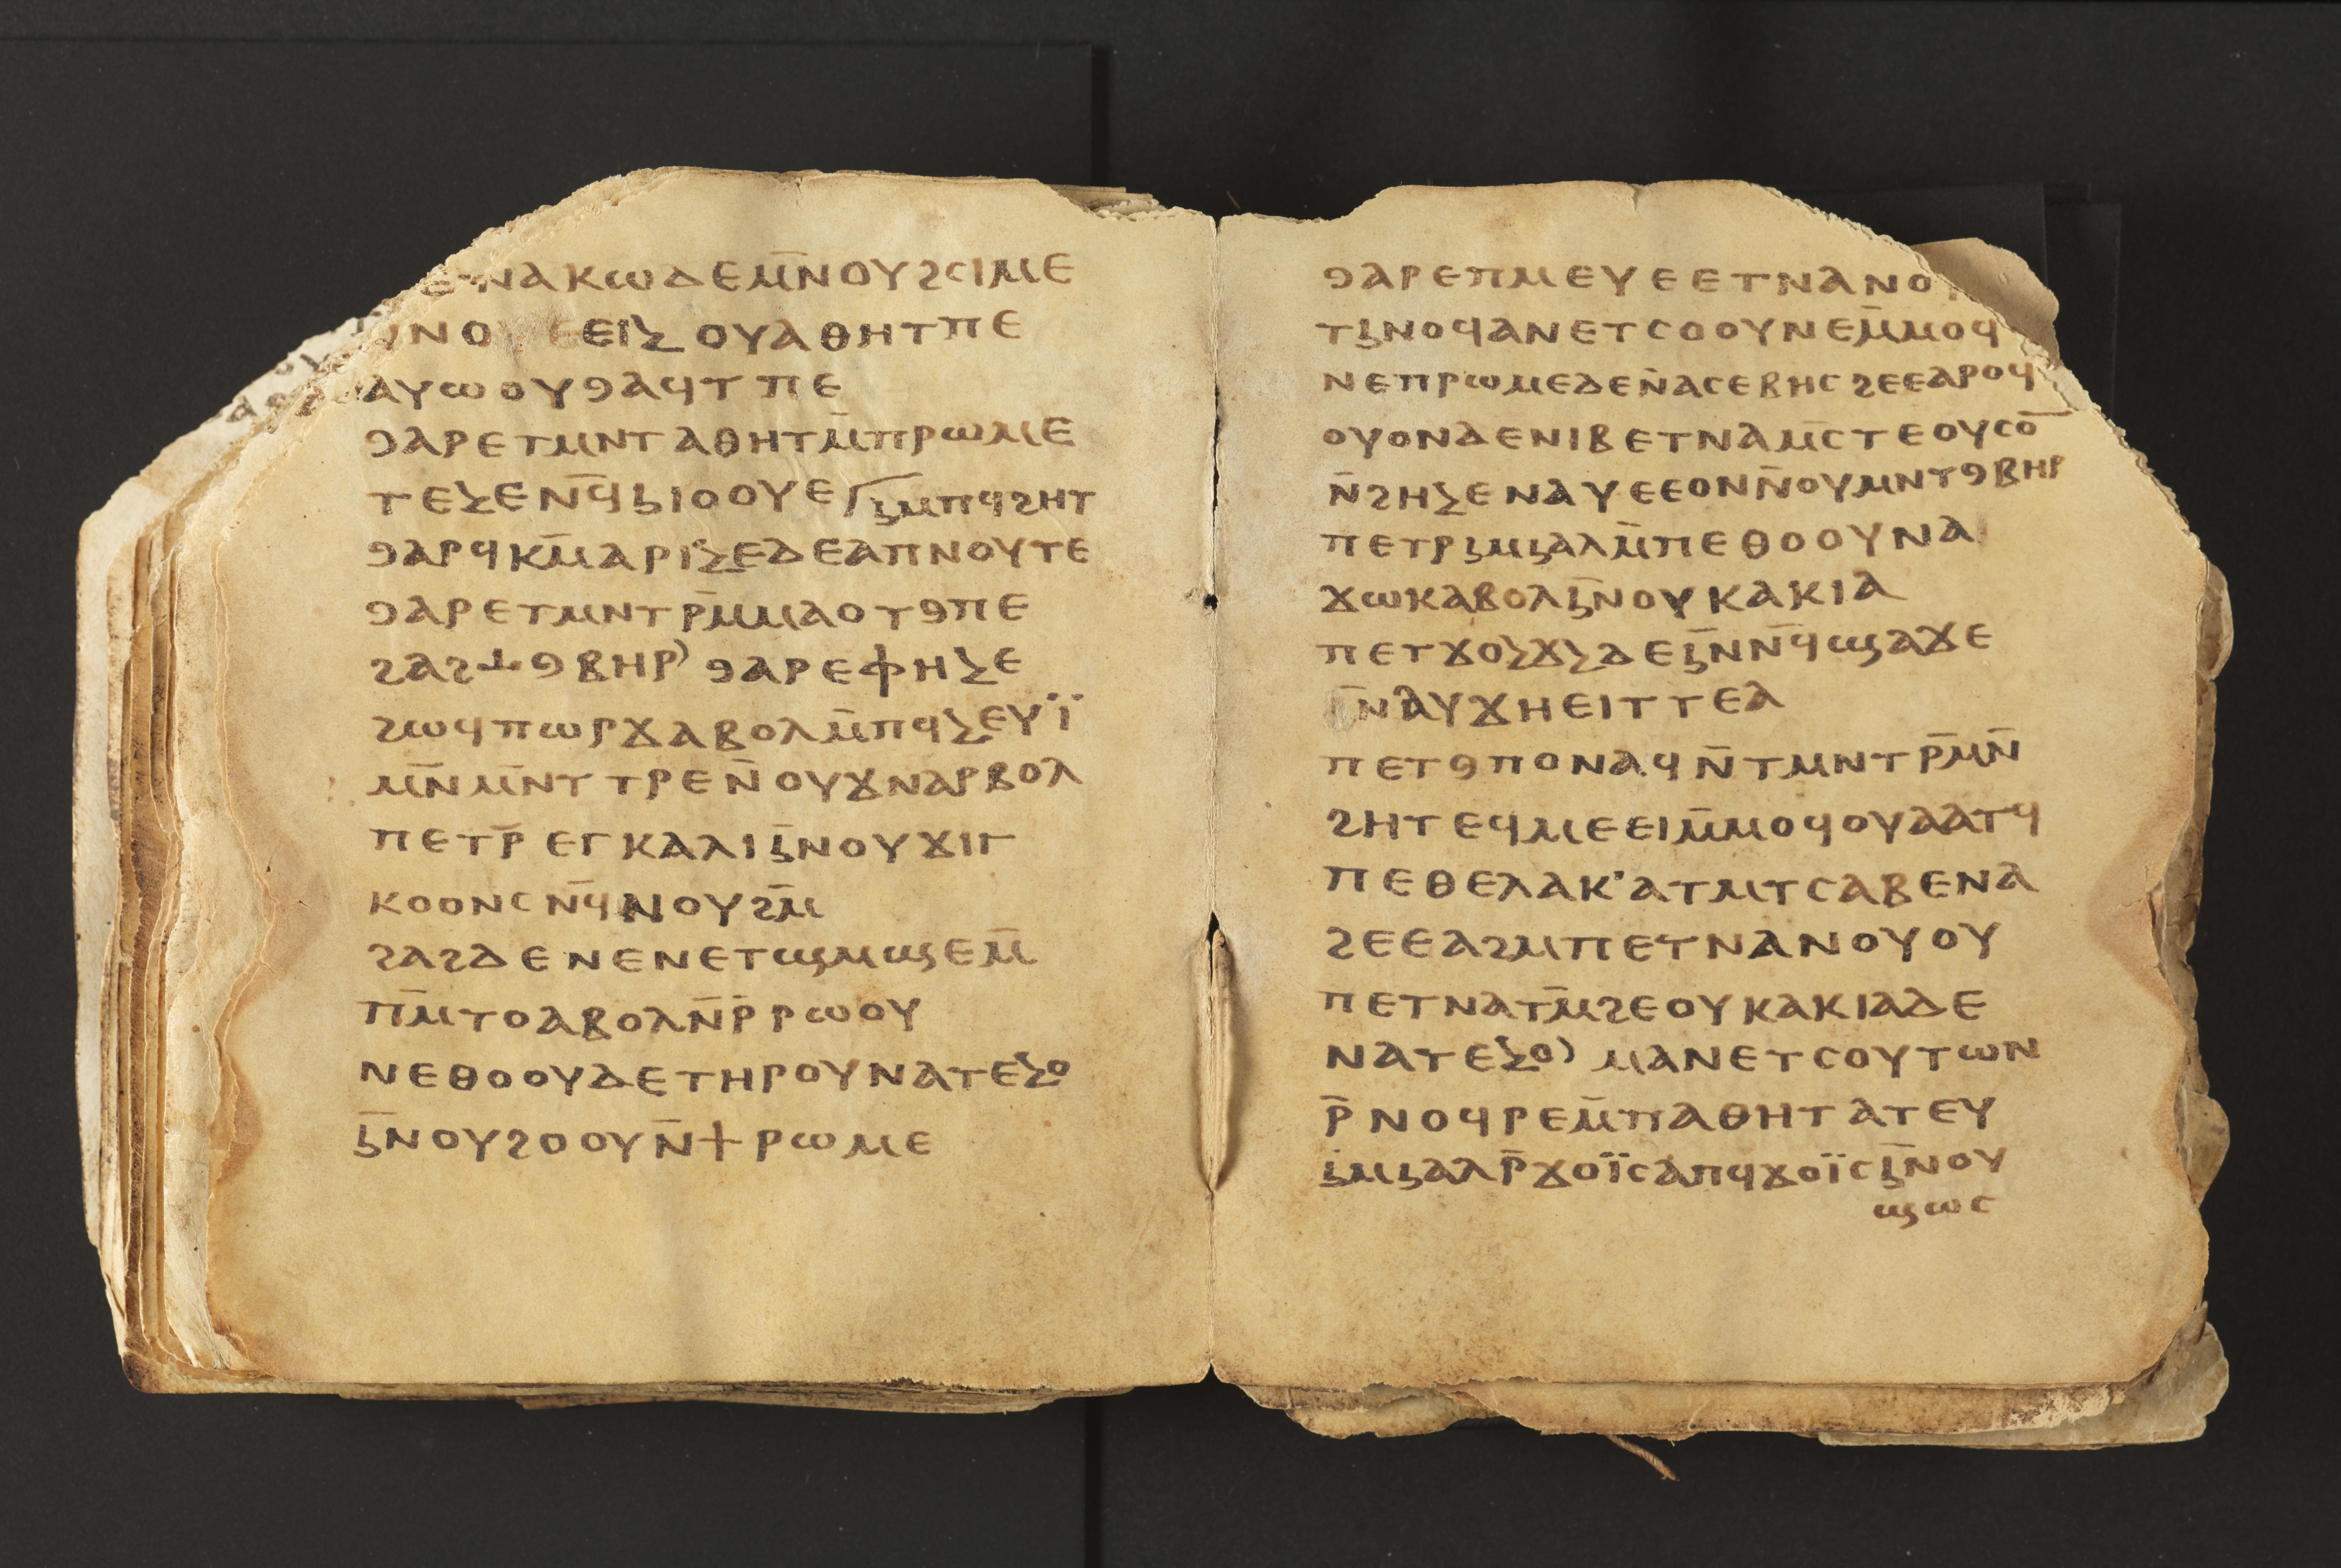 ⲉⲩⲛⲁⲕⲱⲇⲉⲙ̄ⲛⲟⲩϩⲥⲓⲙⲉ
ⲩⲛⲟⲩ ⲉⲉⲓⲹ ⲟⲩⲁⲑⲏⲧⲡⲉ
ⲁⲩⲱⲟⲩⳋⲁϥⲧⲡⲉ
ⳋⲁⲣⲉⲧⲙⲛⲧⲁⲑⲏⲧⲙ̄ⲡⲣⲱⲙⲉ
ⲧⲉⲹⲉⲛ̄ϥϧⲓⲟⲟⲩⲉ ϧⲙⲡϥϩⲏⲧ
ⳋⲁⲣϥⲕⲙ̄ⲁⲣⲓⲹⲉⲇⲉⲁⲡⲛⲟⲩⲧⲉ
ⳋⲁⲣⲉⲧⲙⲛⲧⲣ̄ⲙⲙⲁⲟⲧⳋⲡⲉ
ϩⲁϩⲳⳋⲃⲏⲣ) ⳋⲁⲣⲉⲫⲏⲹⲉ
ϩⲱϥⲡⲱⲣϫⲁⲃⲟⲗⲙ̄ⲡϥⲹⲉⲩⲓ̈
ⲙ̄ⲛⲙ̄ⲛⲧⲧⲣⲉⲛ̄ⲟⲩϫⲛⲁⲣⲃⲟⲗ
ⲡⲉⲧⲣ̄ⲉⲅⲕⲁⲗⲓϧ̄ⲛⲟⲩϫⲓⲅ
ⲕⲟⲟⲛⲥⲛ̄ϥⲛⲟⲩϩⲙ̄
ϩⲁϩⲇⲉⲛⲉⲛⲉⲧϣⲙϣⲉⲙ̄
ⲡⲙ̄ⲧⲟⲁⲃⲟⲗⲛ̄ⲣ̄ⲣⲱⲟⲩ
ⲛⲉⲑⲟⲟⲩⲇⲉⲧⲏⲣⲟⲩⲛⲁⲧⲉⲹⲟ
ϧ̄ⲛⲟⲩϩⲟⲟⲩⲛ̄ϯⲣⲱⲙⲉ
ⳋⲁⲣⲉⲡⲙⲉⲩⲉⲉⲧⲛⲁⲛⲟⲩ
ⲧϧⲛⲟϥⲁⲛⲉⲧⲥⲟⲟⲩⲛⲉⲙ̄ⲙⲟϥ
ⲛⲉⲡⲣⲱⲙⲉⲇⲉⲛ̄ⲁⲥⲉⲃⲏⲥϩⲉⲉⲁⲣⲟϥ
ⲟⲩⲟⲛⲇⲉⲛⲓⲃⲉⲧⲛⲁⲙ̄ⲥⲧⲉⲟⲩⲥⲟ̄
ⲛ̄ϩⲏⲹⲉⲛⲁⲩⲉⲉⲟⲛⲛ̄ⲟⲩⲙⲛⲧⳋⲃⲏⲣ
ⲡⲉⲧⲣϧⲙϧⲁⲗⲙ̄ⲡⲉⲑⲟⲟⲩⲛⲁ
ϫⲱⲕⲁⲃⲟⲗϧ̄ⲛⲟⲩⲕⲁⲕⲓⲁ
ⲡⲉⲧϫⲟⲹϫⲹⲇⲉϧ̄ⲛⲛ̄ϥϣⲁϫⲉ
ⲛ̄ⲁⲩϫⲏⲉⲓⲧⲧⲉⲁ
ⲡⲉⲧⳋⲡⲟⲛⲁϥⲛ̄ⲧⲙⲛⲧⲣ̄ⲙⲛ̄
ϩⲏⲧⲉϥⲙⲉⲉⲓⲙ̄ⲙⲟϥⲟⲩⲁⲁⲧϥ
ⲡⲉⲑⲉⲗⲁⲕ'ⲁⲧⲙⲧⲥⲁⲃⲉⲛⲁ
ϩⲉⲉⲁϩⲙⲡⲉⲧⲛⲁⲛⲟⲩⲟⲩ
ⲡⲉⲧⲛⲁⲧⲙ̄ϩⲉⲟⲩⲕⲁⲕⲓⲁⲇⲉ
ⲛⲁⲧⲉⲹⲟ) ⲙⲁⲛⲉⲧⲥⲟⲩⲧⲱⲛ
ⲣ̄ⲛⲟϥⲣⲉⲙ̄ⲡⲁⲑⲏⲧⲁⲧⲉⲩ
ϧⲙϧⲁⲗⲣ̄ϫⲟⲓ̈ⲥⲁⲡϥϫⲟⲓ̈ⲥϧ̄ⲛⲟⲩ
ϣⲱⲥ